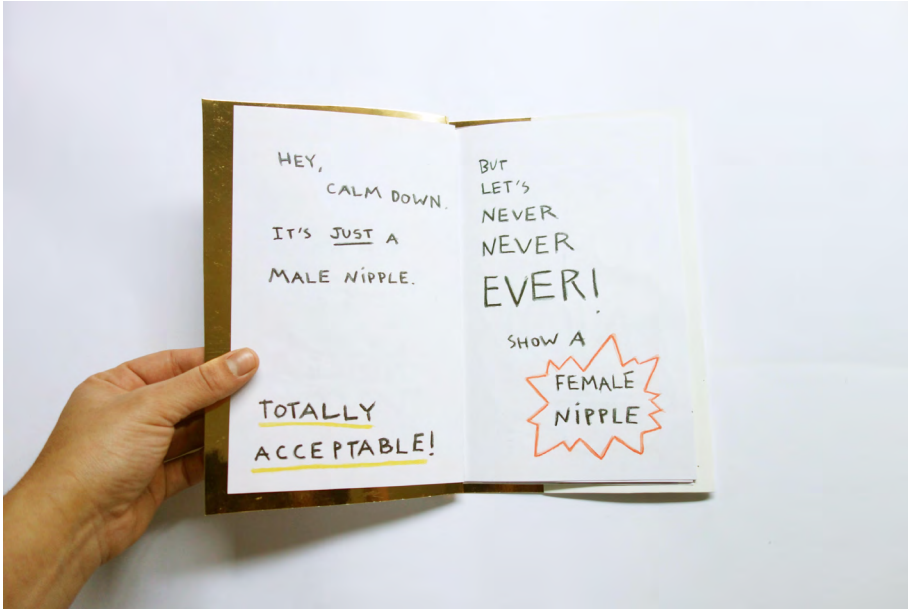 HEY,
CALM DOWN.
IT'S JUST A
MALE NIPPLE.
TOTALLY
ACCEPTABLE!
BUT
LET'S
NEVER
NEVER
EVER!
SHOW A
FEMALE
NIPPLE